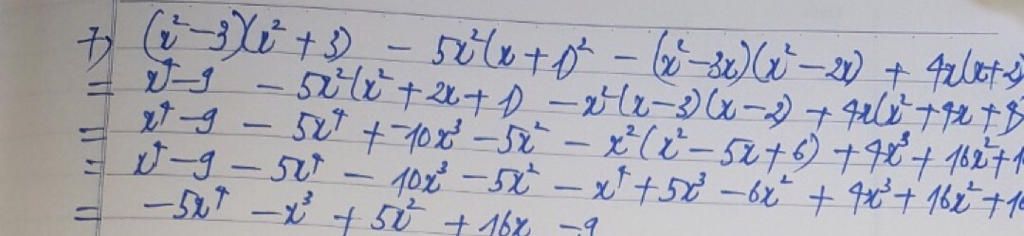 7) (x²-3)(x²+3) - 5x²(x+1)² - (x²-3x)(x²-2x) + 4x(x+2)
= x⁴-9 - 5x²(x²+2x+1) - x²(x-3)(x-2) + 4x(x²+4x+4)
= x⁴-9 - 5x⁴ + -10x³ - 5x² - x²(x²-5x+6) + 4x³ + 16x² + 1
= x⁴-9 - 5x⁴ - 10x³ - 5x² - x⁴ + 5x³ - 6x² + 4x³ + 16x² + 16
= -5x⁴ - x³ + 5x² + 16x - 9